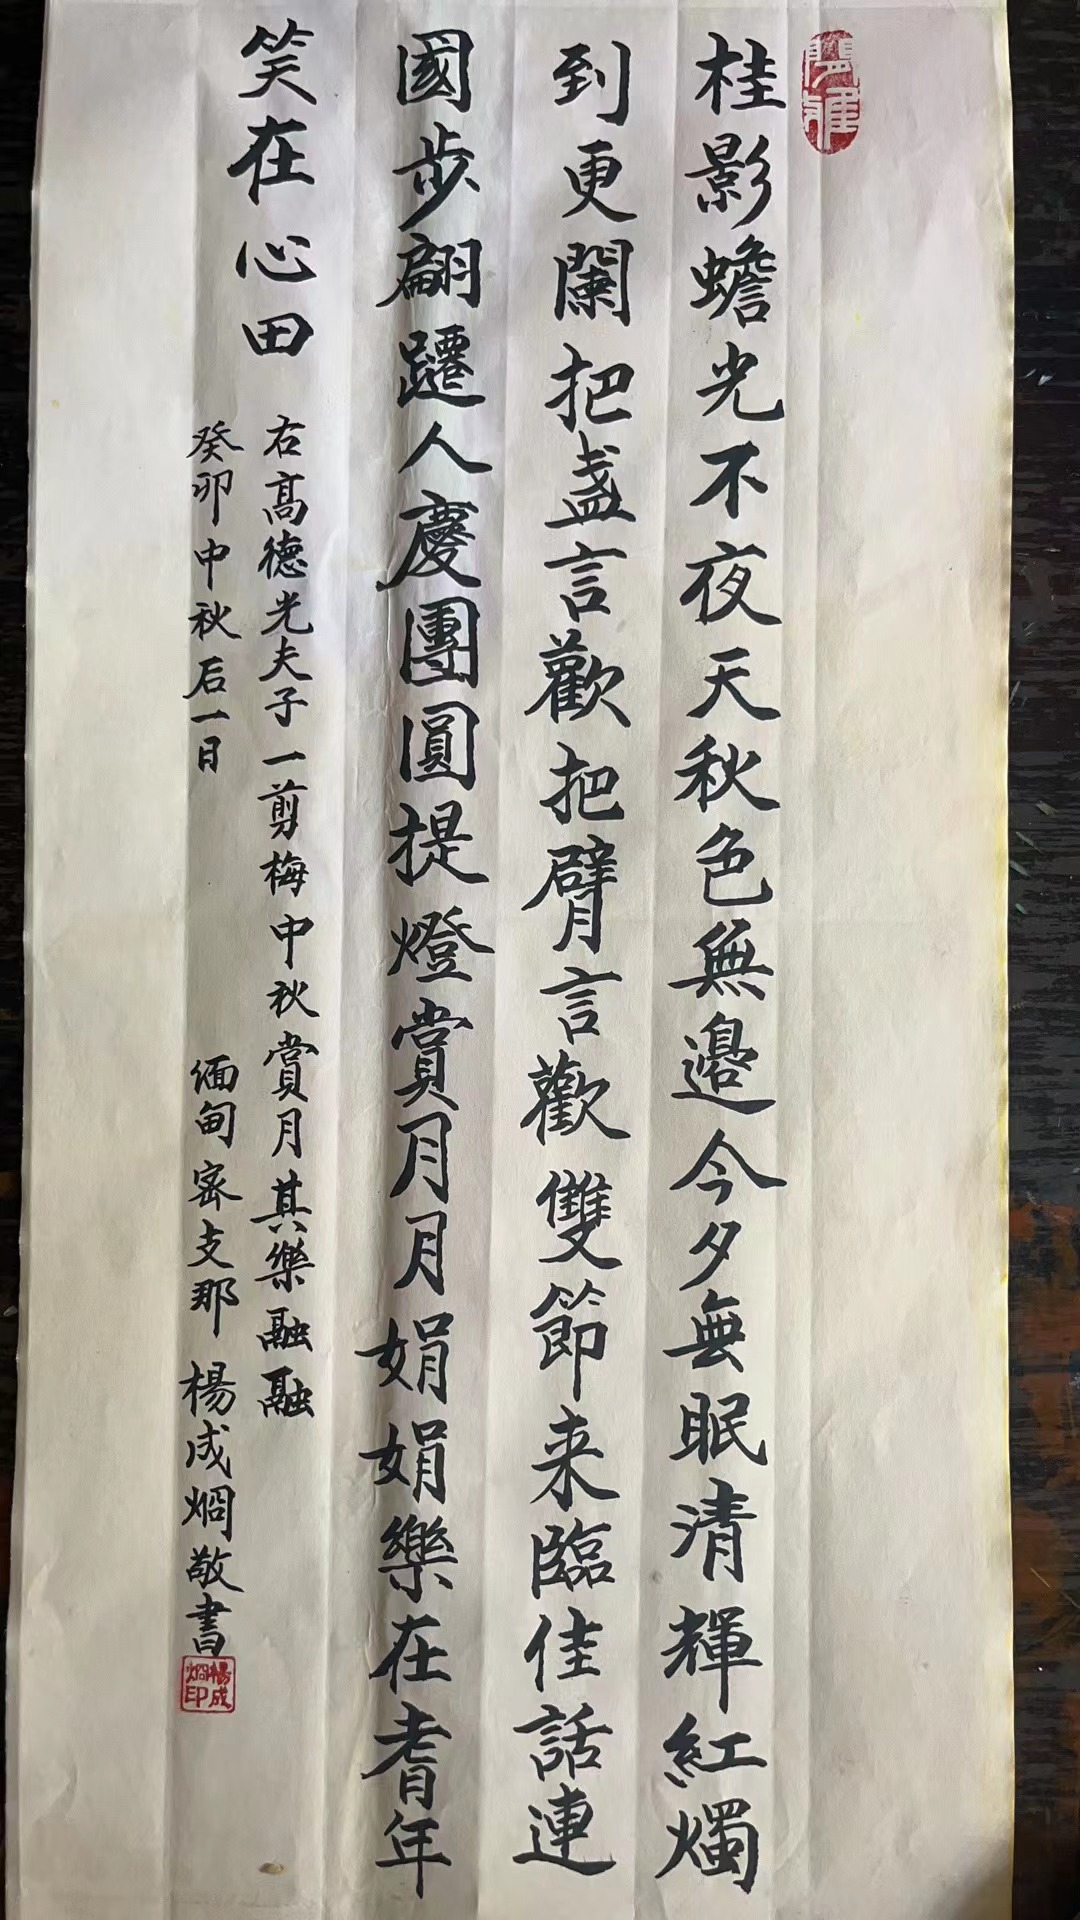 桂影蟾光不夜天秋色無邊今夕無眠清輝紅燭
到更闌把盞言歡把臂言歡雙節来臨佳話連
國步翩躚人慶團圓提燈賞月月娟娟樂在耆年
笑在心田
右高德光夫子一剪梅中秋賞月其樂融融
癸卯中秋后一日
缅甸密支那 楊成焗敬書
楊成焗印